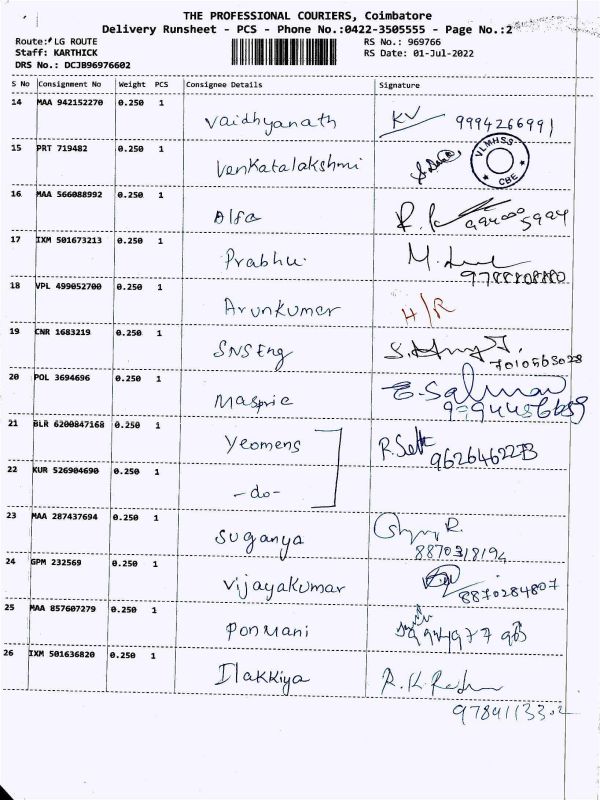 THE PROFESSIONAL COURIERS, Coimbatore
Delivery Runsheet - PCS - Phone No.:0422-3505555 - Page No.:2
Route: LG ROUTE RS No.: 969766
Staff: KARTHICK RS Date: 01-Jul-2022
DRS No.: DCJB96976602
S No Consignment No Weight PCS Consignee Details Signature
14 MAA 942152270 0.250 1 Vaidhyanath KV 9994266991
15 PRT 719482 0.250 1 Venkatalakshmi VLMHSS CBE
16 MAA 566088992 0.250 1 Alfa
17 IXM 501673213 0.250 1 Prabhu 9788808880
18 VPL 499052700 0.250 1 Arunkumar H/R
19 CNR 1683219 0.250 1 SNS Eng 7010563028
20 POL 3694696 0.250 1 Maspric E.Salman 9994456659
21 BLR 6200847168 0.250 1 Yeomens
22 KUR 526904690 0.250 1 -do-
23 MAA 287437694 0.250 1 Suganya 8870318194
24 GPM 232569 0.250 1 Vijayakumar 8870284807
25 MAA 857607279 0.250 1 Ponmani
26 IXM 501636820 0.250 1 Ilakkiya